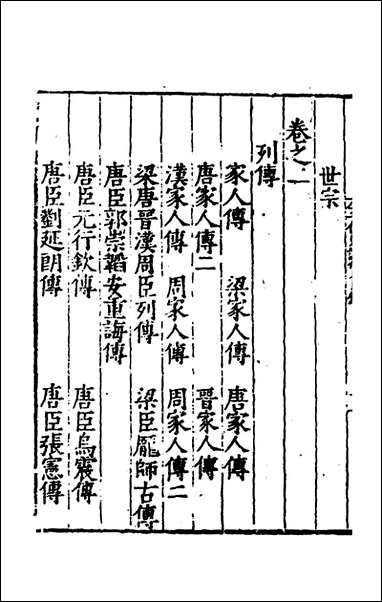 世宗
卷之一
列傳
家人傳 梁家人傳 唐家人傳
唐家人傳二 晉家人傳
漢家人傳 周家人傳 周家人傳二
梁唐晉漢周臣列傳 梁臣龐師古傳
唐臣郭崇韜安重誨傳
唐臣元行欽傳 唐臣烏震傳
唐臣劉延朗傳 唐臣張憲傳